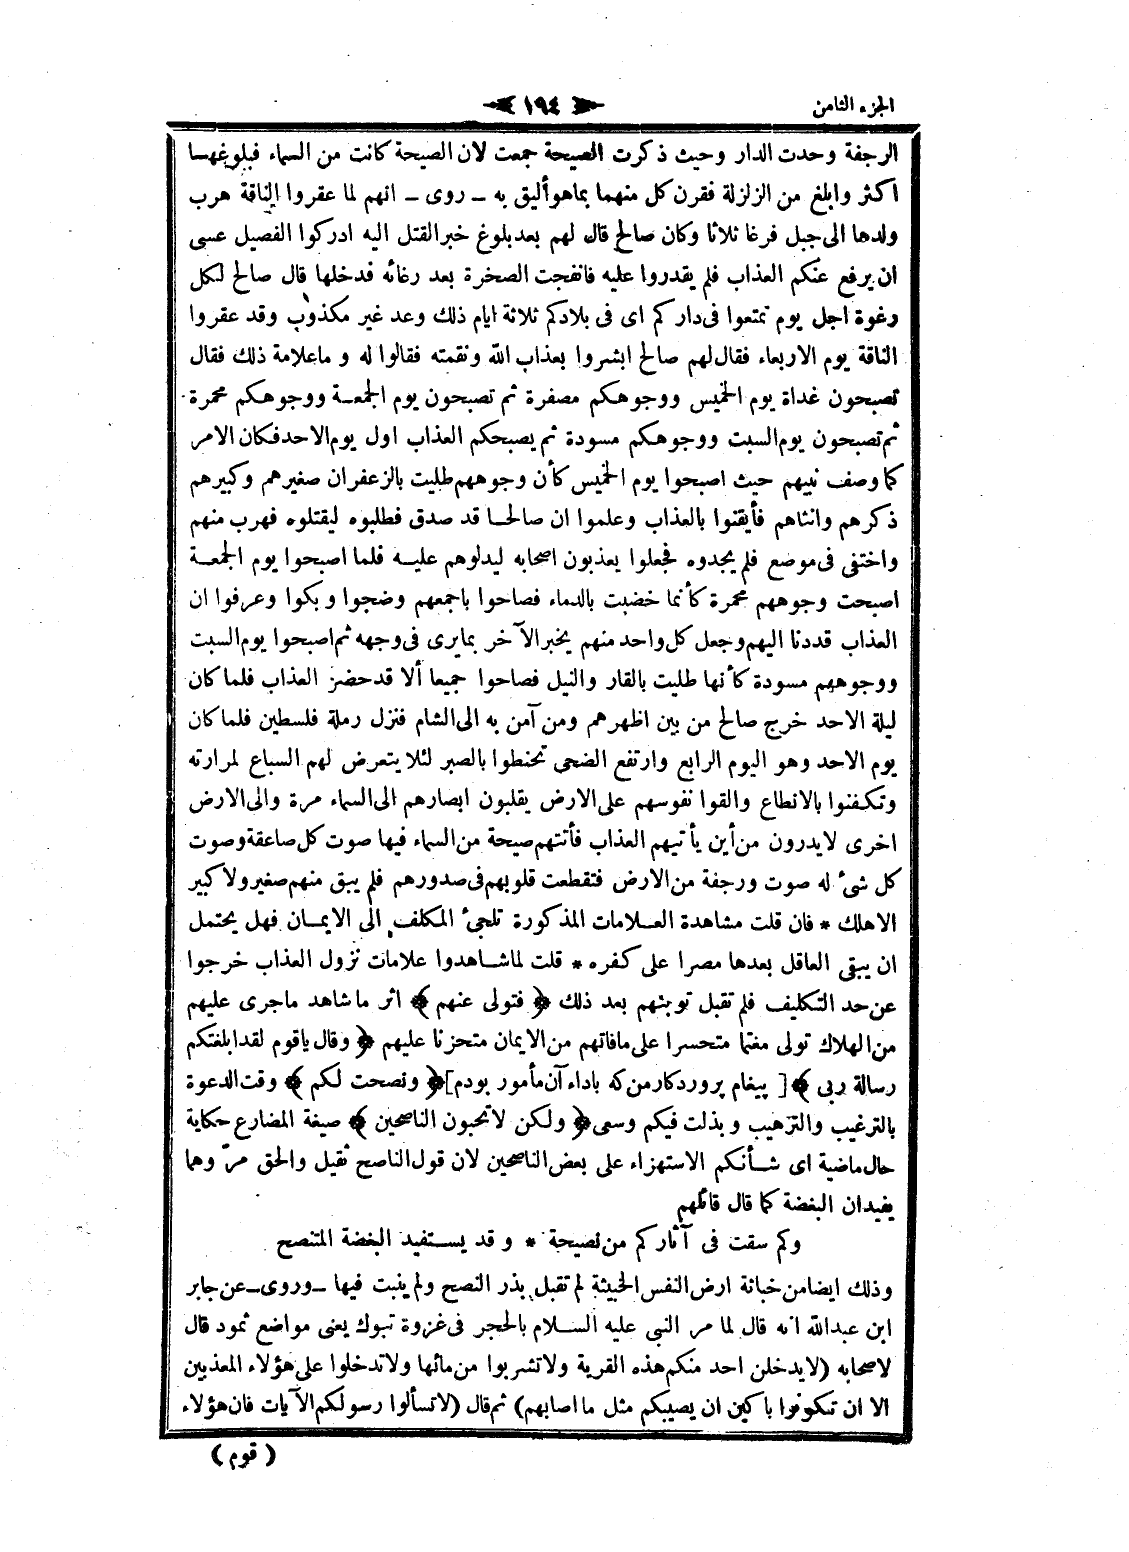 الجزء الثامن
١٩٤
الرجفة وحدت الدار وحيث ذكرت الصيحة جمعت لان الصيحة كانت من السماء فبلوغها
اكثر وابلغ من الزلزلة فقرن كل منهما بما هو أليق به ـ روى ـ انهم لما عقروا الناقة هرب
ولدها الى جبل فرغا ثلاثا وكان صالح قال لهم بعد بلوغ خبر القتل اليه ادركوا الفصيل عسى
ان يرفع عنكم العذاب فلم يقدروا عليه فانفجت الصخرة بعد رغائه فدخلها قال صالح لكل
رغوة اجل يوم تمتعوا فى داركم اى فى بلادكم ثلاثة ايام ذلك وعد غير مكذوب وقد عقروا
الناقة يوم الاربعاء فقال لهم صالح ابشروا بعذاب الله ونقمته فقالوا له وما علامة ذلك فقال
تصبحون غداة يوم الخميس ووجوهكم مصفرة ثم تصبحون يوم الجمعة ووجوهكم محمرة
ثم تصبحون يوم السبت ووجوهكم مسودة ثم يصبحكم العذاب اول يوم الاحد فكان الامر
كما وصف نبيهم حيث اصبحوا يوم الخميس كأن وجوههم طليت بالزعفران صغيرهم وكبيرهم
ذكرهم وانثاهم فأيقنوا بالعذاب وعلموا ان صالحا قد صدق فطلبوه ليقتلوه فهرب منهم
واختفى فى موضع فلم يجدوه فجعلوا يعذبون اصحابه ليدلوهم عليه فلما اصبحوا يوم الجمعة
اصبحت وجوههم محمرة كأنما خضبت بالدماء فصاحوا باجمعهم وضجوا وبكوا وعرفوا ان
العذاب قددنا اليهم وجعل كل واحد منهم يخبر الآخر بما يرى فى وجهه ثم اصبحوا يوم السبت
ووجوههم مسودة كأنها طليت بالقار والنيل فصاحوا جميعا ألا قد حضر العذاب فلما كان
ليلة الاحد خرج صالح من بين اظهرهم ومن آمن به الى الشام فنزل رملة فلسطين فلما كان
يوم الاحد وهو اليوم الرابع وارتفع الضحى تحنطوا بالصبر لئلا يتعرض لهم السباع لمرارته
وتكفنوا بالانطاع والقوا نفوسهم على الارض يقلبون ابصارهم الى السماء مرة والى الارض
اخرى لا يدرون من أين يأتيهم العذاب فأتتهم صيحة من السماء فيها صوت كل صاعقة وصوت
كل شئ له صوت ورجفة من الارض فتقطعت قلوبهم فى صدورهم فلم يبق منهم صغير ولا كبير
الاهلك * فان قلت مشاهدة العلامات المذكورة تلجئ المكلف الى الايمان فهل يحتمل
ان يبقى العاقل بعدها مصرا على كفره * قلت لما شاهدوا علامات نزول العذاب خرجوا
عن حد التكليف فلم تقبل توبتهم بعد ذلك ﴿ فتولى عنهم ﴾ اثر ما شاهد ماجرى عليهم
من الهلاك تولى مغتما متحسرا على مافاتهم من الايمان متحزنا عليهم ﴿ وقال ياقوم لقد ابلغتكم
رسالة ربى ﴾ [ پيغام پروردكار من كه باداء آن مأمور بودم] ﴿ ونصحت لكم ﴾ وقت الدعوة
بالترغيب والترهيب وبذلت فيكم وسعى ﴿ ولكن لا تحبون الناصحين ﴾ صيغة المضارع حكاية
حال ماضية اى شأنكم الاستهزاء على بعض الناصحين لان قول الناصح ثقيل والحق مرّ وهما
يفيدان البغضة كما قال قائلهم
وكم سقت فى آثاركم من نصيحة * وقد يستفيد البغضة المتنصح
وذلك ايضا من خباثة ارض النفس الخبيثة لم تقبل بذر النصح ولم ينبت فيها ـ وروى ـ عن جابر
ابن عبدالله انه قال لما مر النبى عليه السلام بالحجر فى غزوة تبوك يعنى مواضع ثمود قال
لاصحابه (لا يدخلن احد منكم هذه القرية ولا تشربوا من مائها ولا تدخلوا على هؤلاء المعذبين
الا ان تكونوا باكين ان يصيبكم مثل ما اصابهم) ثم قال (لا تسألوا رسولكم الآيات فان هؤلاء
( قوم )